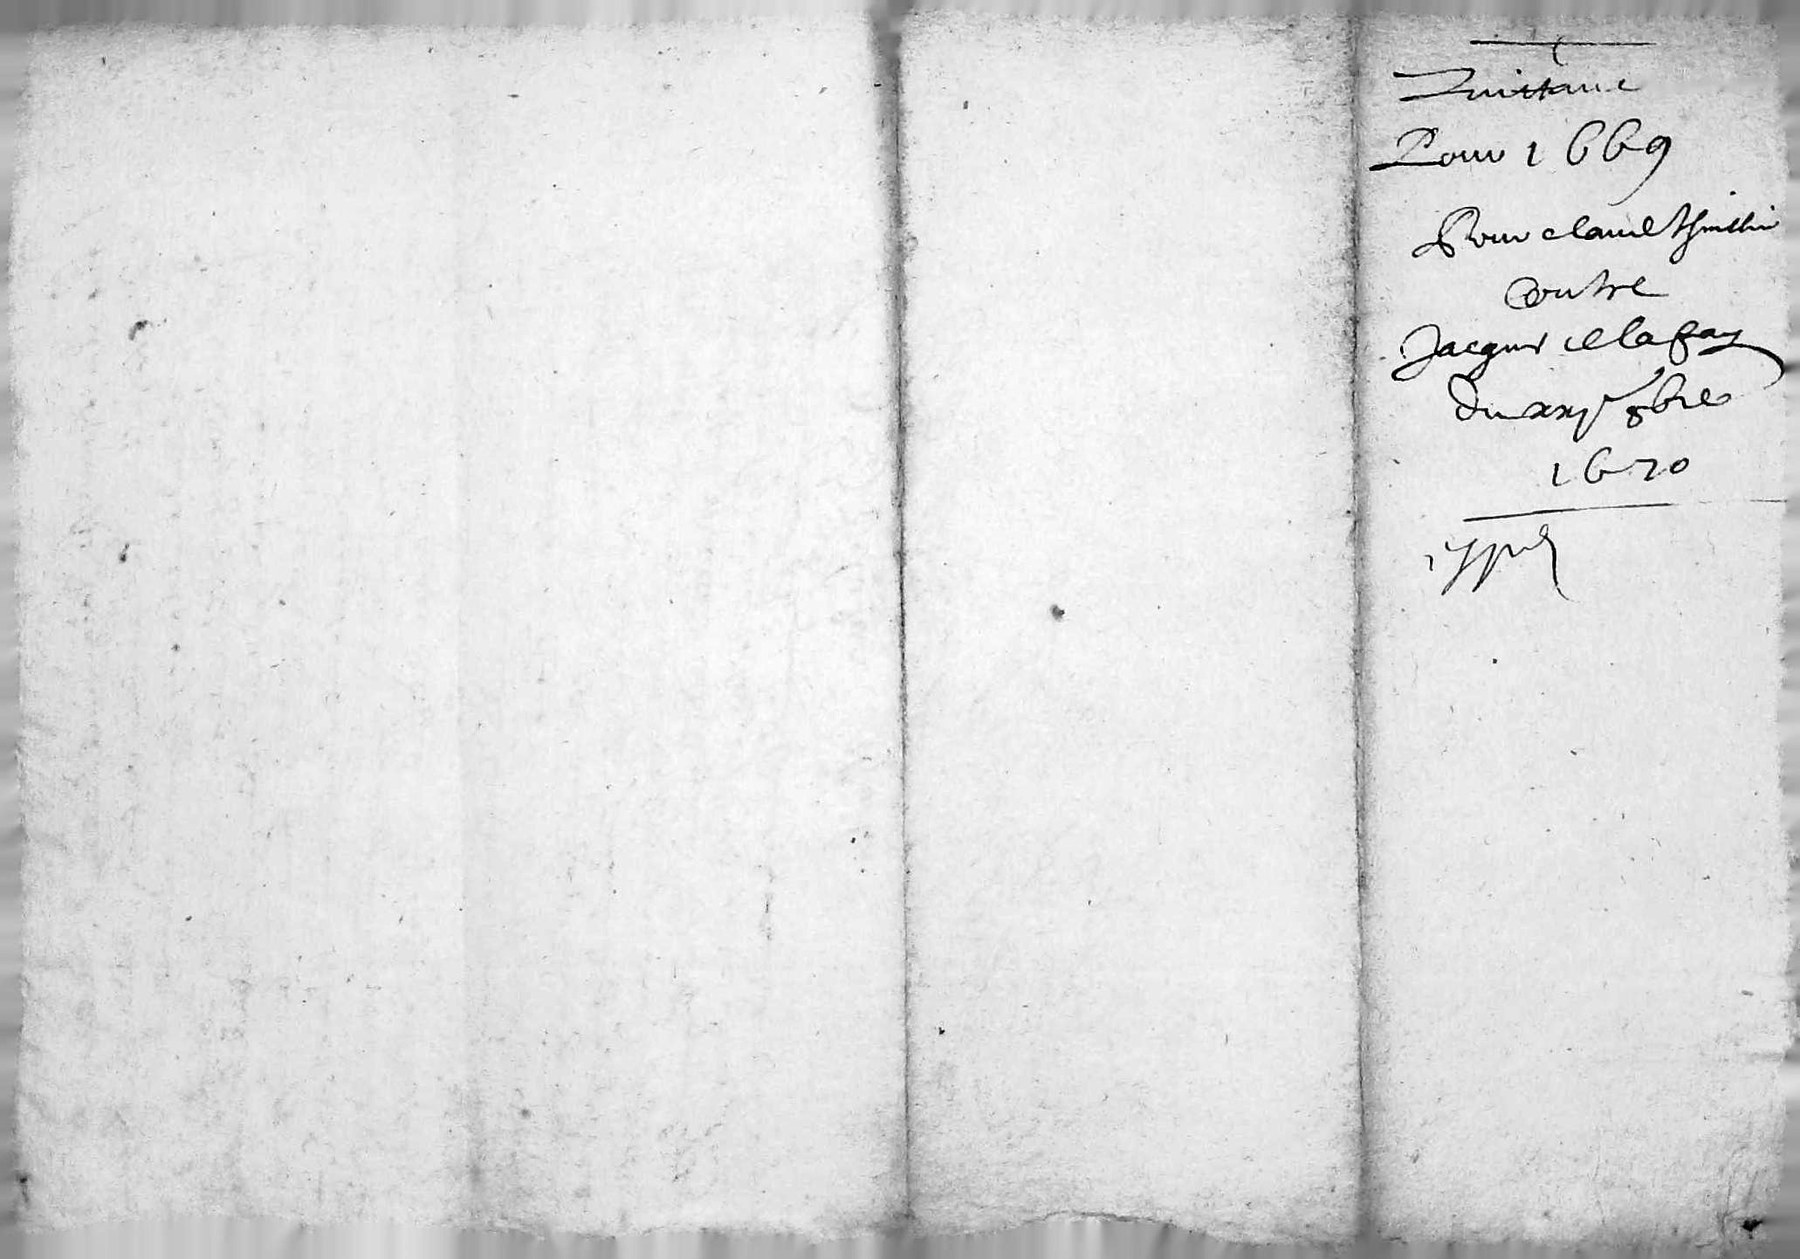 Quittance
Pour 1669
Pour claude
contre
Jacques delafay
du xxj 8bre
1670